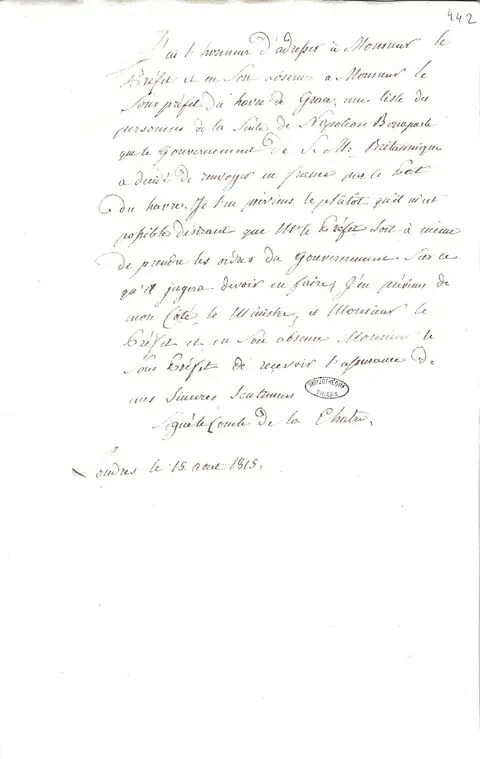 442
J'ai l'honneur d'adresser à Monsieur le
Préfet et en son absence a Monsieur le
Sous préfet du havre de Grace, une liste des
personnes de la Suite de Napoléon Bonaparte
que le Gouvernement de S. M. Britannique
a décidé de renvoyer en france par le Port
du havre. Je l'en préviens le plutôt qu'il m'est
possible désirant que Mr. le Préfet soit à même
de prendre les ordres du Gouvernement Sur ce
qu'il jugera devoir en faire, J'en préviens de
mon Côté le Ministre, et Monsieur le
Préfet et en son absence Monsieur le
Sous Préfet de recevoir l'assurance de
mes Sinceres Sentimens
BIBLIOTHEQUE
Signé le Comte de la Chatre.
Londres le 15 aout 1815.